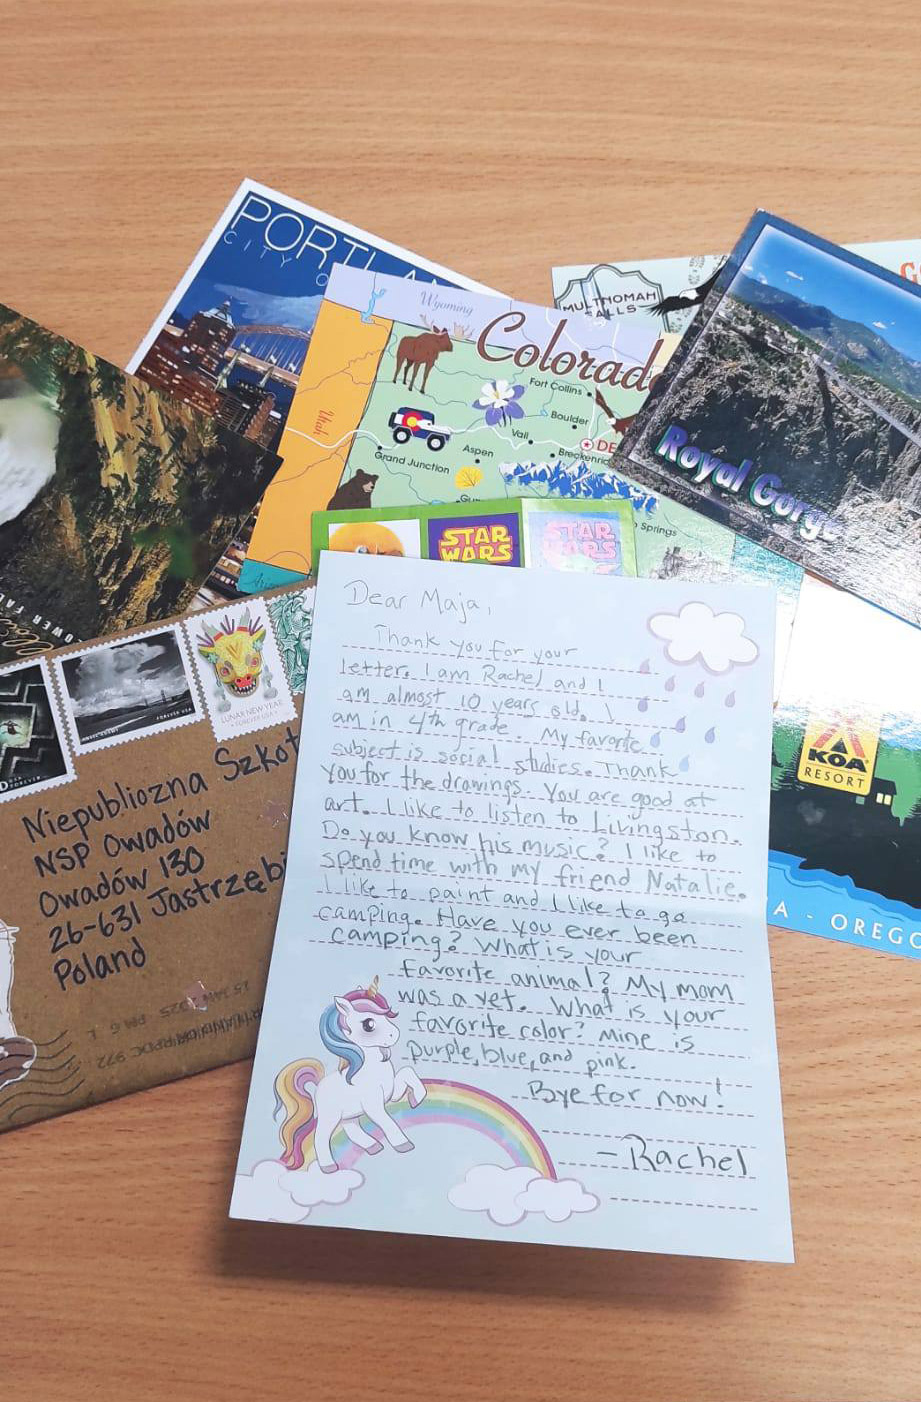 PORTLAN
CITY O
Wyoming
Colorad
Utah
Fort Collins
Boulder
Vail
DE
Breckenric
Aspen
Grand Junction
Springs
MULTNOMAH
FALLS
Royal Gorge
STAR
WARS
STAR
WARS
LUNAR NEW YEAR
FOREVER USA
FOREVER USA
KOA
RESORT
A - OREGO
Niepubliozna Szkoł
NSP Owadów
Owadów 130
26-631 Jastrzębi
Poland
15 JAN 2025 PM 6 L
Dear Maja,
Thank you for your
letter. I am Rachel and I
am almost 10 years old. I
am in 4th grade. My favorite
subject is social studies. Thank
you for the drawings. You are good at
art. I like to listen to Livingston.
Do you know his music? I like to
spend time with my friend Natalie.
I like to paint and I like to go
camping. Have you ever been
camping? What is your
favorite animal? My mom
was a vet. What is your
favorite color? Mine is
purple, blue, and pink.
Bye for now!
-Rachel